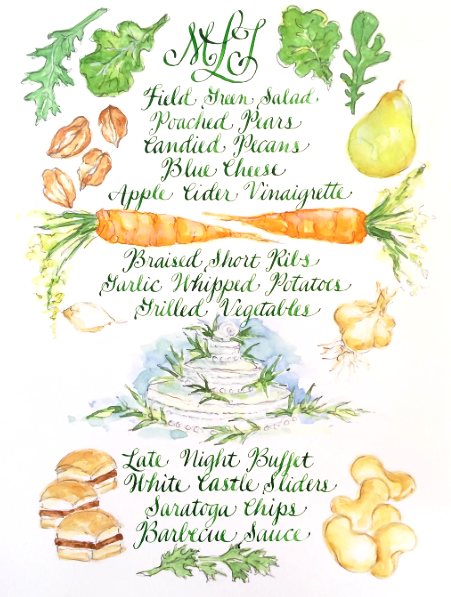 MLJ
Field Green Salad
Poached Pears
Candied Pecans
Blue Cheese
Apple Cider Vinaigrette
Braised Short Ribs
Garlic Whipped Potatoes
Grilled Vegetables
Late Night Buffet
White Castle Sliders
Saratoga Chips
Barbecue Sauce